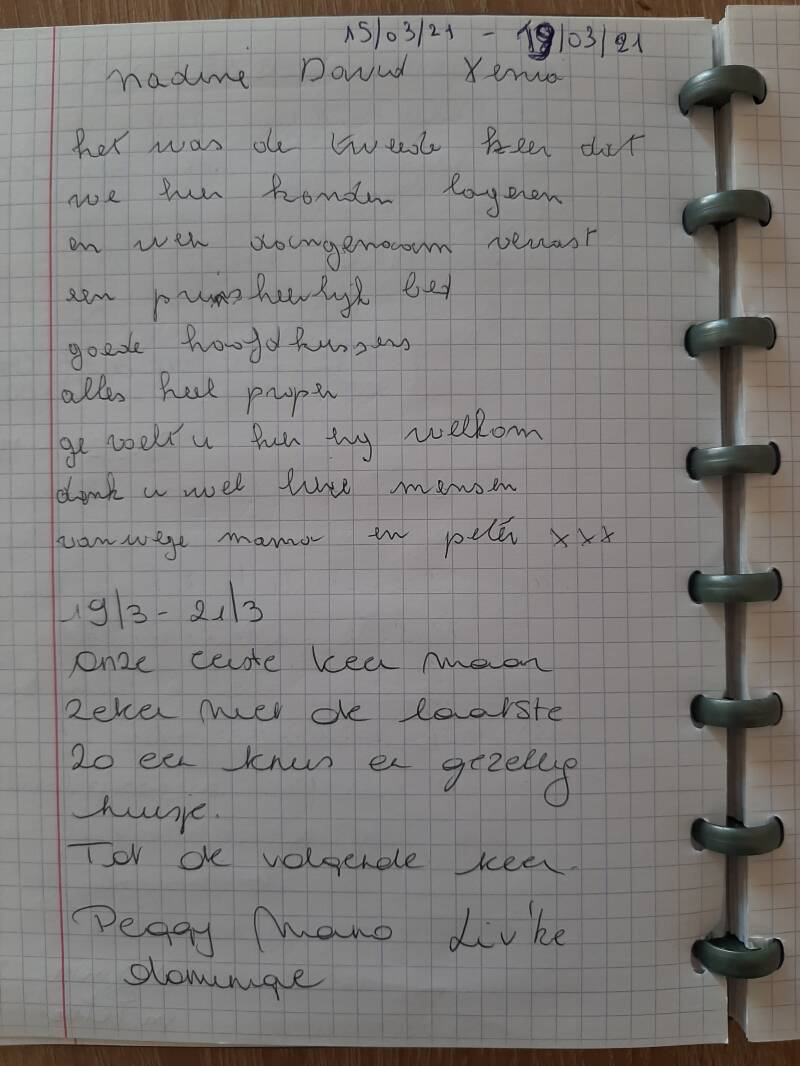 15/03/21 - 19/03/21
Nadine David Xenia
het was de tweede keer dat
we hier konden logeren
en weer aangenaam verrast
een prinsheerlijk bed
goede hoofdkussens
alles heel proper
ge voelt u hier erg welkom
dank u wel lieve mensen
vanwege mama en peter xxx
19/3 - 21/3
Onze eerste keer maar
zeker niet de laatste
zo een knus en gezellig
huisje.
Tot de volgende keer.
Peggy Mano Liv'ke
dominique